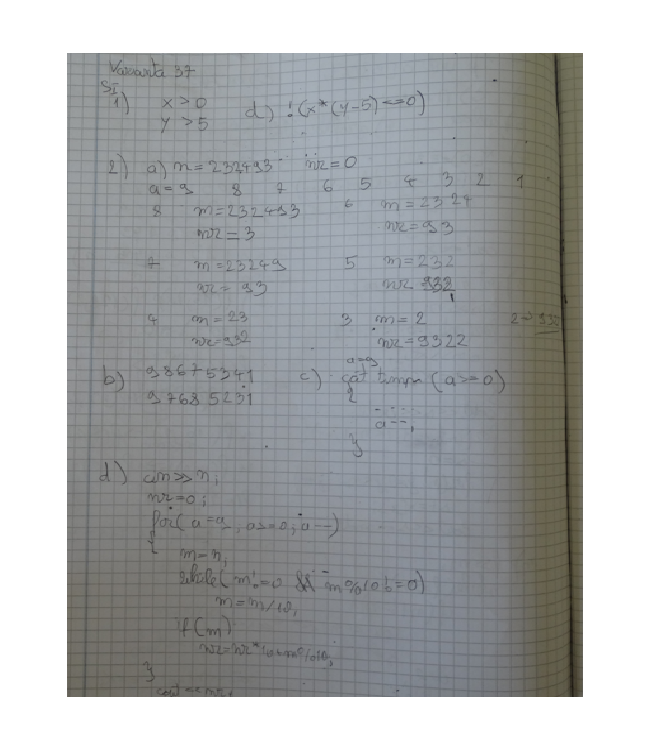 Varianta 37
SI
1) x>0 d) !(x*(y-5)<=0)
y>5
2) a) n=232493 nr=0
a=9 8 7 6 5 4 3 2 1
8 m=232493 6 m=2324
nr=3 nr=93
7 m=23249 5 m=232
nr=93 nr 932
4 m=23 3 m=2
nr=932 nr=9322
b) 98675341 c) a=9
97685231 cat timp (a>=0)
{
a--;
}
d) cin>>n;
nr=0;
for(a=9; a>=0; a--)
{
m=n;
while(m!=0 && m%10!=a)
m=m/10;
if(m)
nr=nr*10+m%10;
}
cout<<nr;